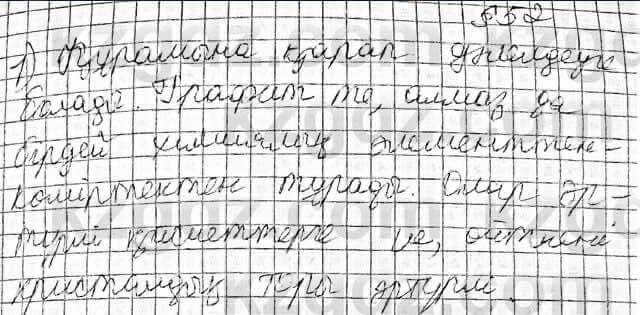 §52
1) Құрамына қарап дәлелдеуге
болады. Графит те, алмаз да
бірдей химиялық элементтен-
көміртектен тұрады. Олар әр-
түрлі қасиеттерге ие, өйткені
кристалдық торы әртүрлі.